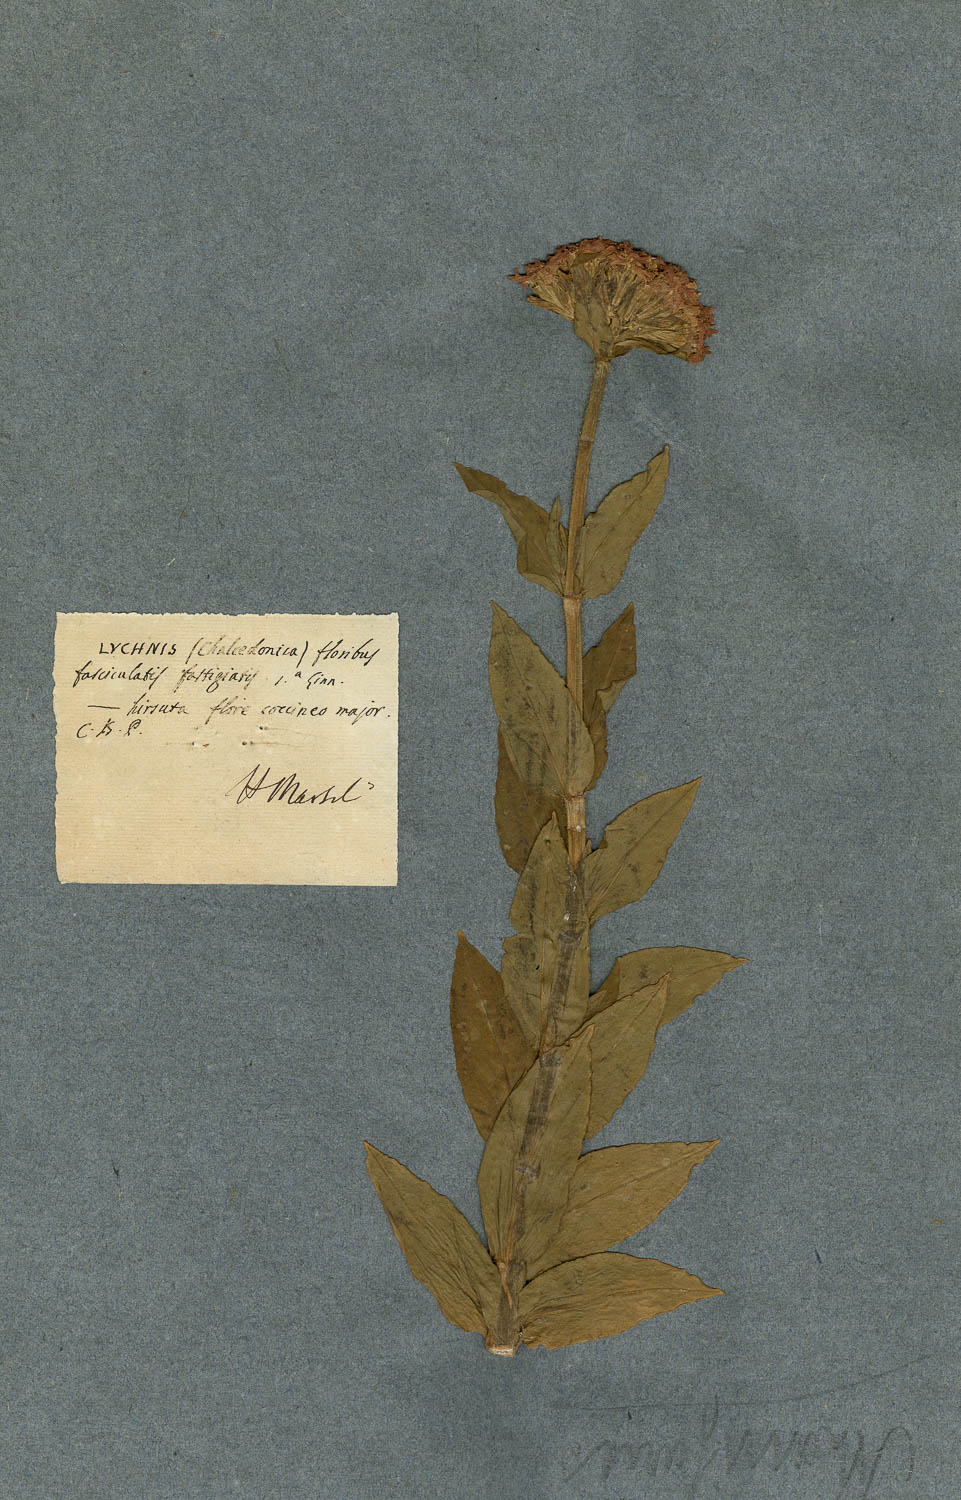 LYCHNIS (Chalcedonica) floribus
fasciculatis fastigiatis 1.a Linn.
— hirsuta flore coccineo major.
C. B. P.
H